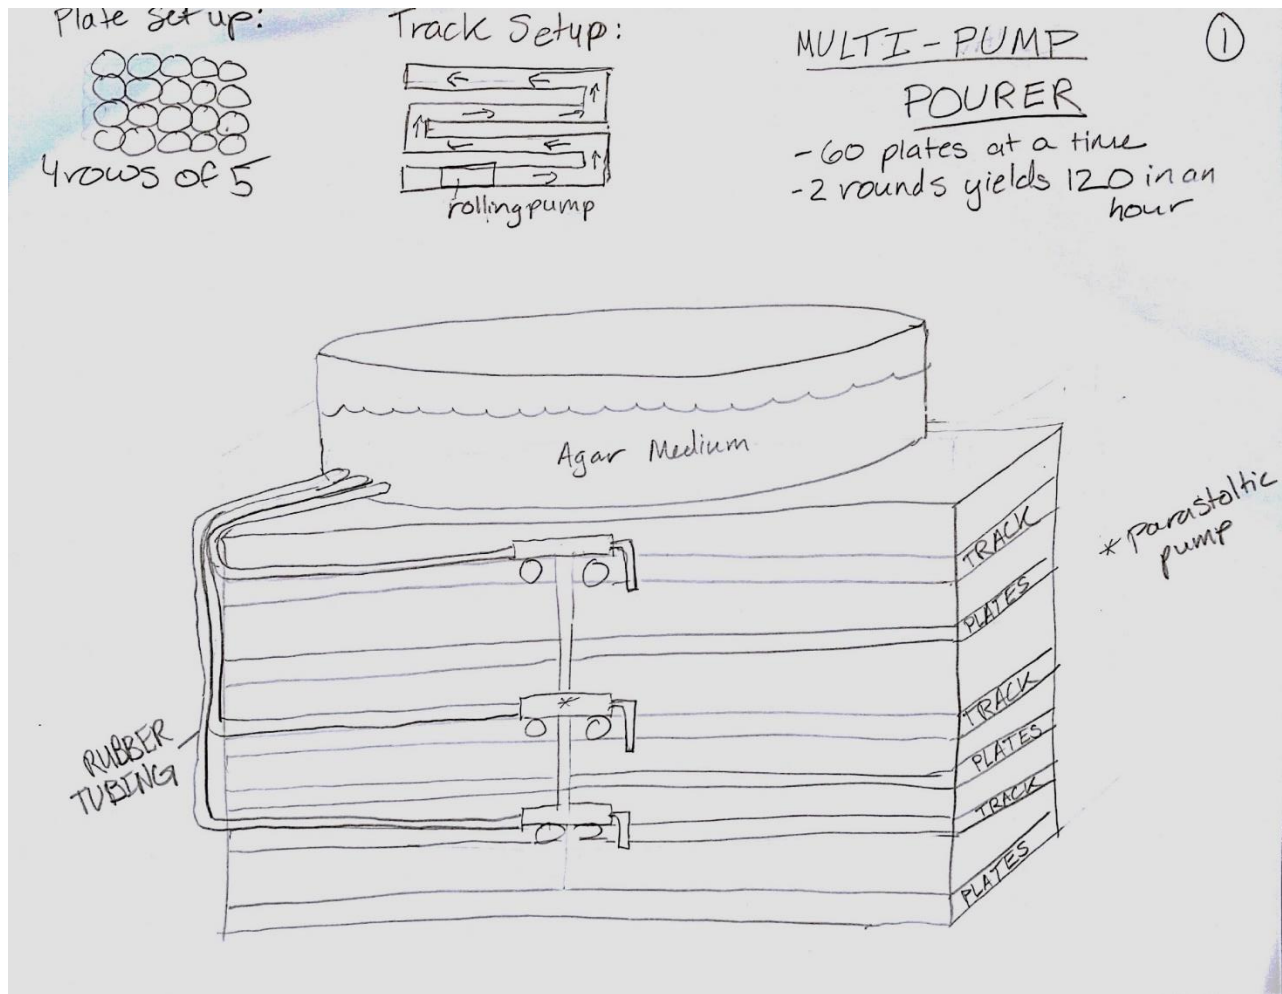 Plate Set up:
4 rows of 5
Track Setup:
rolling pump
MULTI-PUMP
POURER
①
- 60 plates at a time
- 2 rounds yields 120 in an
hour
Agar Medium
TRACK
PLATES
TRACK
PLATES
TRACK
PLATES
* parastoltic
pump
RUBBER
TUBING
*